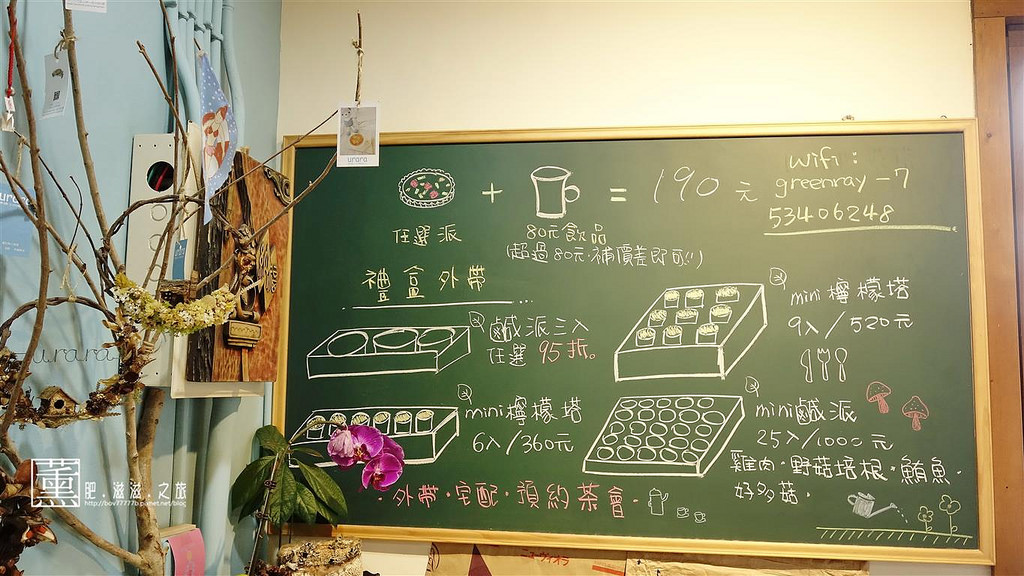 wifi:
greenray-7
53406248
+ = 190 元
任選派
80元飲品
(超過80元·補價差即可!!)
禮盒外帶
鹹派三入
任選95折。
mini 檸檬塔
9入/520元
mini檸檬塔
6入/360元
mini鹹派
25入/1000元
雞肉·野菇培根·鮪魚·
好多菇·
外帶·宅配·預約茶會·
urara
urara
薰
肥.滋滋.之旅